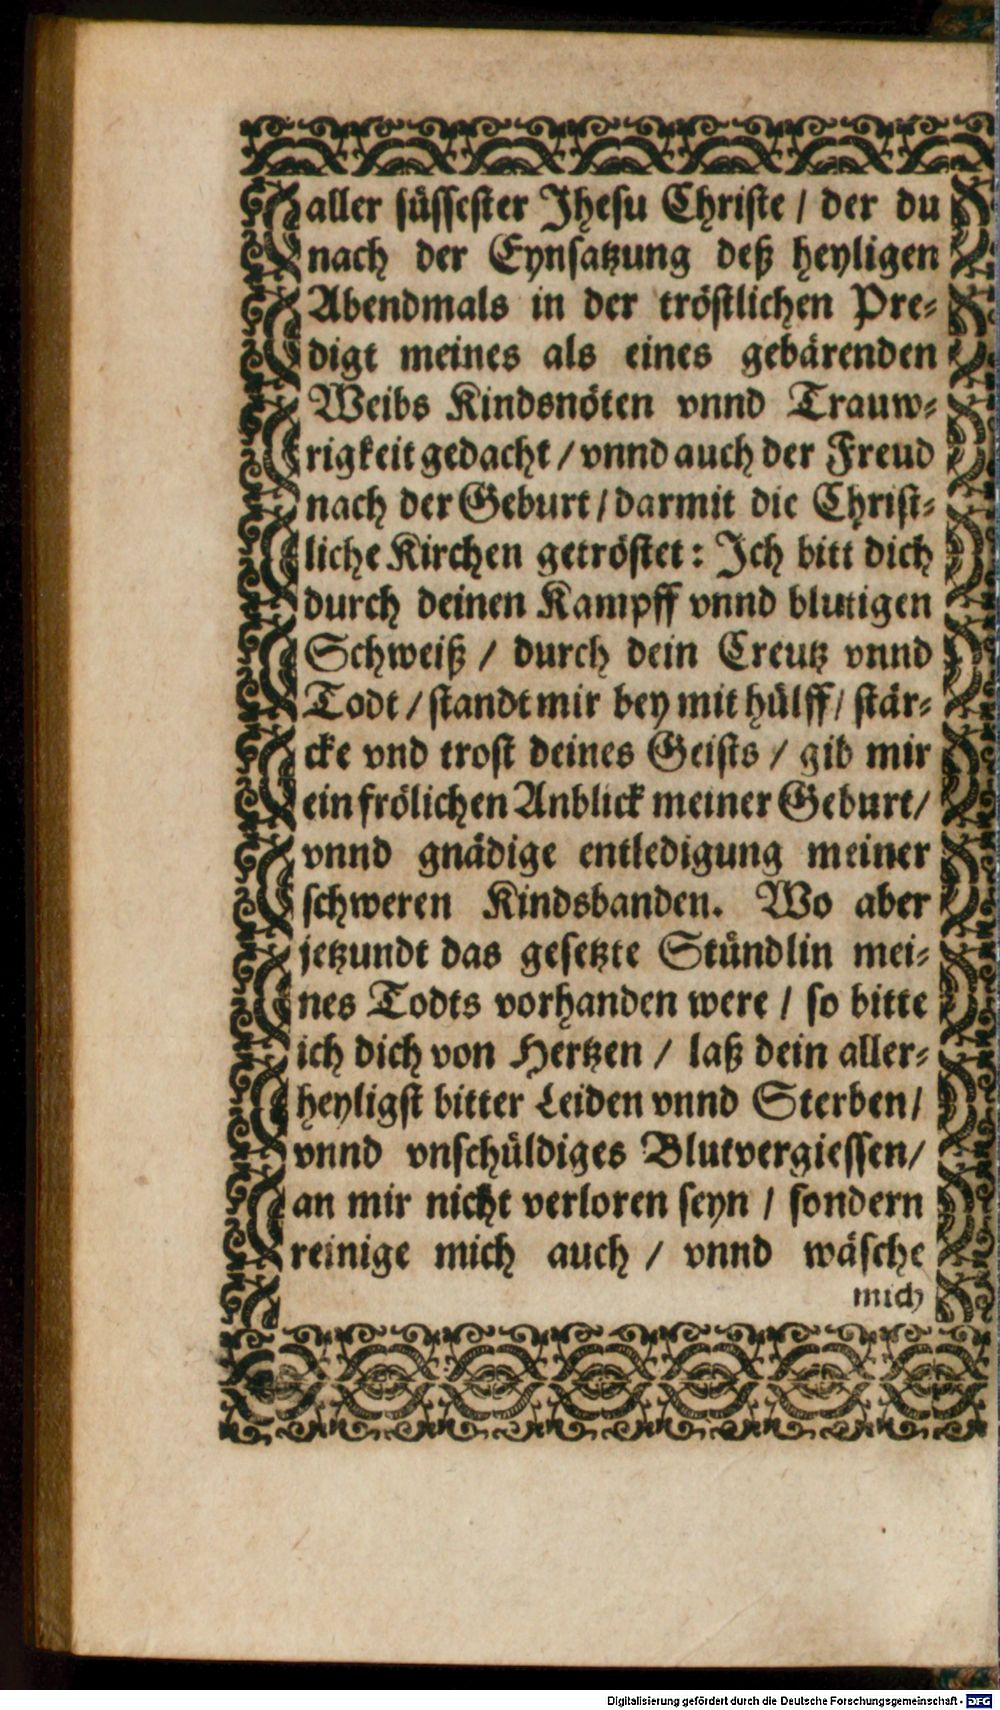 aller süssester Jhesu Christe / der du
nach der Eynsatzung deß heyligen
Abendmals in der tröstlichen Pre-
digt meines als eines gebärenden
Weibs Kindsnöten vnnd Trauw-
rigkeit gedacht / vnnd auch der Freud
nach der Geburt / darmit die Christ-
liche Kirchen getröstet: Ich bitt dich
durch deinen Kampff vnnd blutigen
Schweiß / durch dein Creutz vnnd
Todt / standt mir bey mit hülff / stär-
cke vnd trost deines Geists / gib mir
ein frölichen Anblick meiner Geburt /
vnnd gnädige entledigung meiner
schweren Kindsbanden. Wo aber
jetzundt das gesetzte Stündlin mei-
nes Todts vorhanden were / so bitte
ich dich von Hertzen / laß dein aller-
heyligst bitter Leiden vnnd Sterben /
vnnd vnschüldiges Blutvergiessen /
an mir nicht verloren seyn / sondern
reinige mich auch / vnnd wäsche
mich
Digitalisierung gefördert durch die Deutsche Forschungsgemeinschaft - DFG